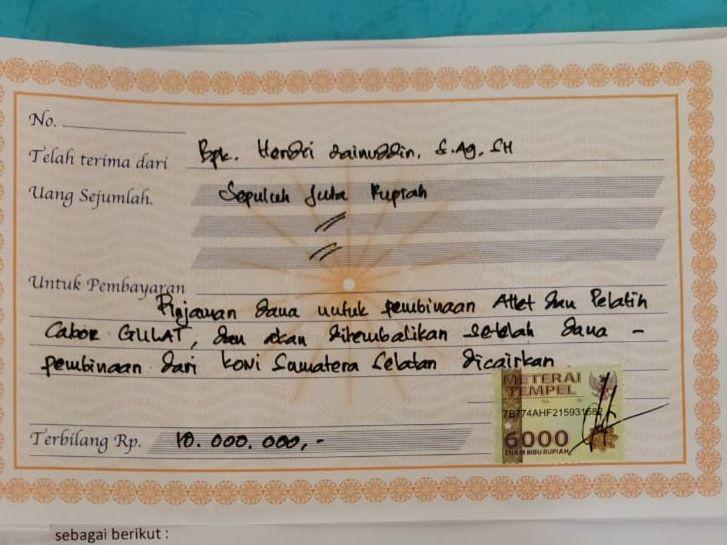 No.
Telah terima dari Bpk. Hendri Zainuddin, S.Ag, SH
Uang Sejumlah. Sepuluh Juta Rupiah
Untuk Pembayaran
Pinjaman dana untuk pembinaan Atlet dan Pelatih
Cabor GULAT, dan akan dikembalikan setelah dana -
pembinaan dari KONI Sumatera Selatan dicairkan
METERAI
TEMPEL
6000
ENAM RIBU RUPIAH
Terbilang Rp. 10.000.000,-
sebagai berikut :